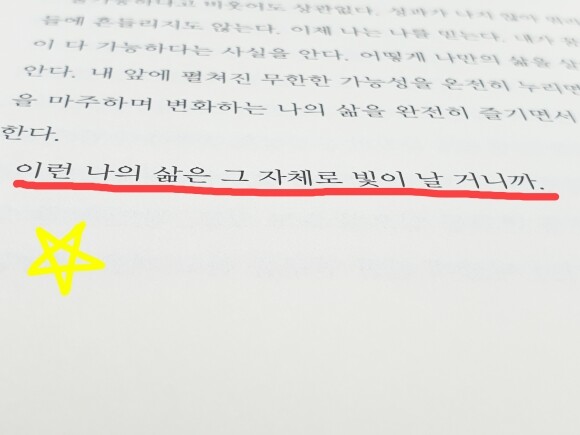 하다고 비웃어도 상관없다. 성과가 나지 않아
들에 흔들리지도 않는다. 이제 나는 나를 믿는다. 내가
이 다 가능하다는 사실을 안다. 어떻게 나만의 삶을
안다. 내 앞에 펼쳐진 무한한 가능성을 온전히 누리면
을 마주하며 변화하는 나의 삶을 완전히 즐기면서
한다.
이런 나의 삶은 그 자체로 빛이 날 거니까.